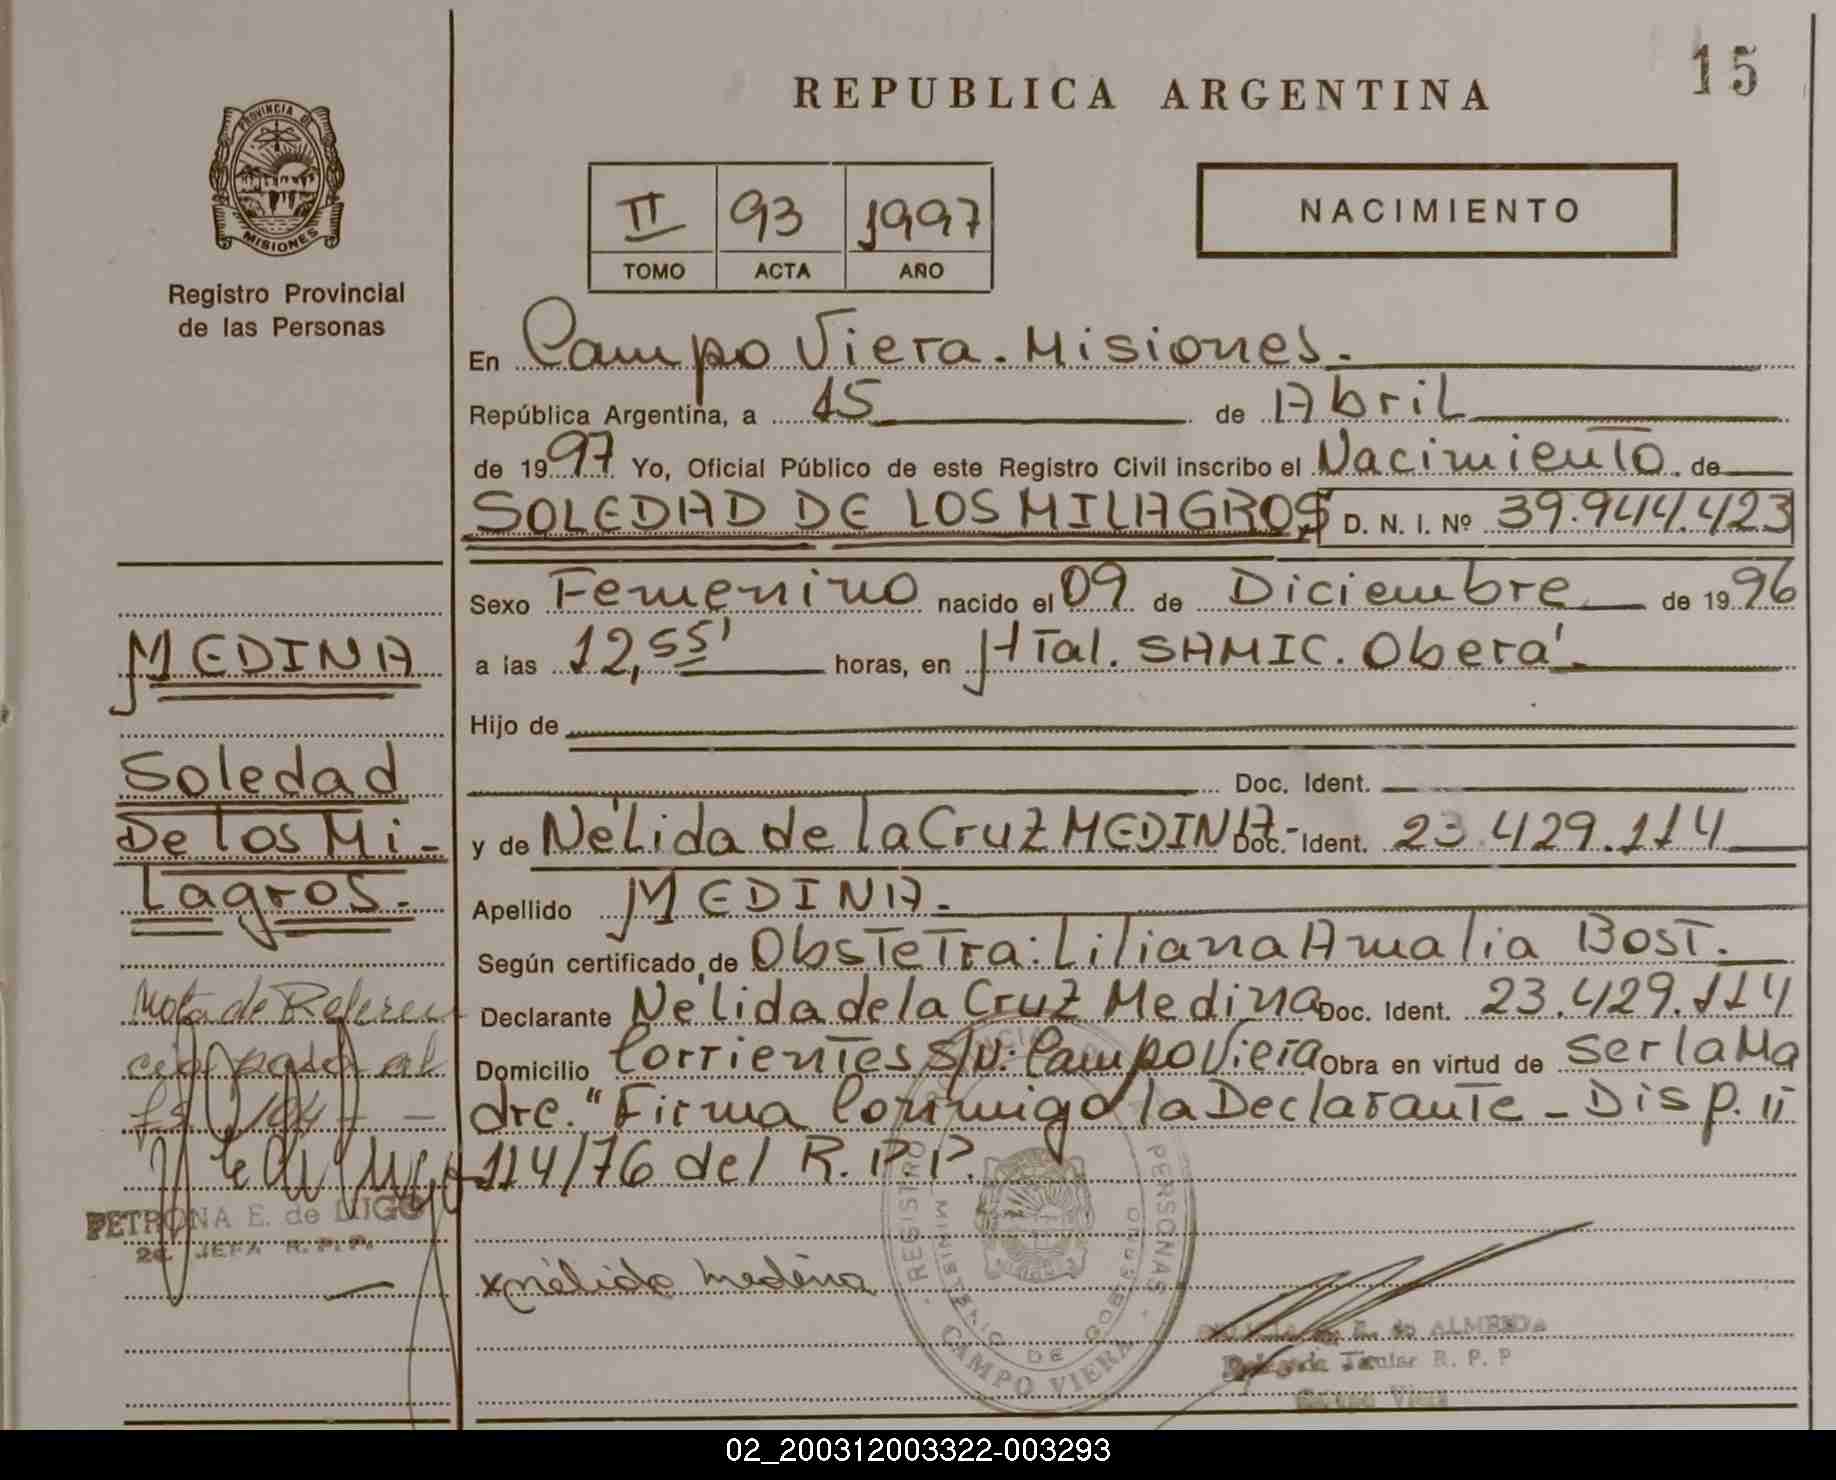 15
REPUBLICA ARGENTINA
PROVINCIA DE
MISIONES
Registro Provincial
de las Personas
II 93 1997
TOMO ACTA AÑO
NACIMIENTO
En Campo Viera. Misiones.
República Argentina, a 15 de Abril
de 1997 Yo, Oficial Público de este Registro Civil inscribo el Nacimiento de
SOLEDAD DE LOS MILAGROS D. N. I. Nº 39.944.423
Sexo Femenino nacido el 09 de Diciembre de 1996
a las 12,55' horas, en Htal. SAMIC. Oberá.
Hijo de
Doc. Ident.
y de Nélida de la Cruz MEDINA- Doc. Ident. 23.429.114
Apellido MEDINA.
Según certificado de Obstetra: Liliana Amalia Bost.
Declarante Nélida de la Cruz Medina Doc. Ident. 23.429.114
Domicilio Corrientes s/n. Campo Viera Obra en virtud de ser la Ma
dre." Firma Conmigo la Declarante - Disp. 
114/76 del R.P.P.
xnélida medina
MEDINA
Soledad
De los Mi-
lagros.
Nota de Referen
cia pasa al
fs 104 - -
PETRONA E. de LUGO
2a. JEFA R. P. P.
REGISTRO PERSONAS
MINISTERIO DE GOBIERNO
CAMPO VIERA
de ALMEIDA
Delegada Titular R. P. P
Campo Viera
02_200312003322-003293